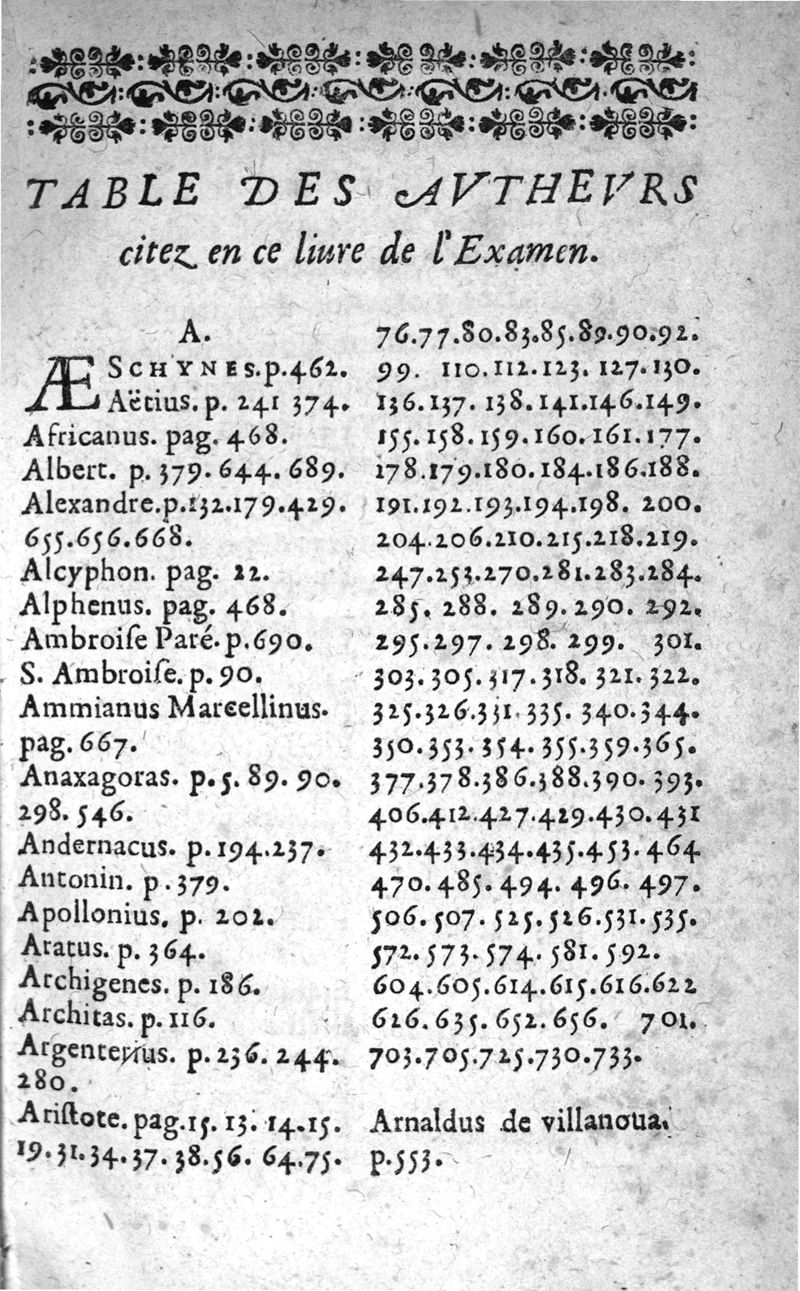 TABLE DES AVTHEVRS
citez en ce liure de l'Examen.
A.
ÆSCHYNES.p.462.
Aëtius. p. 241 374.
Africanus. pag. 468.
Albert. p. 379. 644. 689.
Alexandre.p.132.179.429.
655.656.668.
Alcyphon. pag. 22.
Alphenus. pag. 468.
Ambroiſe Paré.p.690.
S. Ambroiſe.p.90.
Ammianus Marcellinus.
pag.667.
Anaxagoras. p.5. 89. 90.
298. 546.
Andernacus. p.194.237.
Antonin. p.379.
Apollonius. p. 202.
Aratus. p. 364.
Archigenes. p. 186.
Architas. p.116.
Argenterius. p.236. 244.
280.
Ariſtote.pag.15. 13. 14.15.
19.31.34.37.38.56. 64.75.
76.77.80.83.85.89.90.92.
99. 110.112.123. 127.130.
136.137. 138.141.146.149.
155.158.159.160.161.177.
178.179.180.184.186.188.
191.192.193.194.198. 200.
204.206.210.215.218.219.
247.253.270.281.283.284.
285. 288. 289.290. 292.
295.297. 298. 299. 301.
303.305.317.318. 321.322.
325.326.331.335. 340.344.
350.353.354.355.359.365.
377.378.386.388.390.393.
406.412.427.429.430.431
432.433.434.435.453.464
470.485. 494. 496. 497.
506.507. 525.526.531.535.
572.573.574. 581. 592.
604.605.614.615.616.622
626.635. 652.656. 701.
703.705.725.730.733.
Arnaldus de villanoua.
p.553.